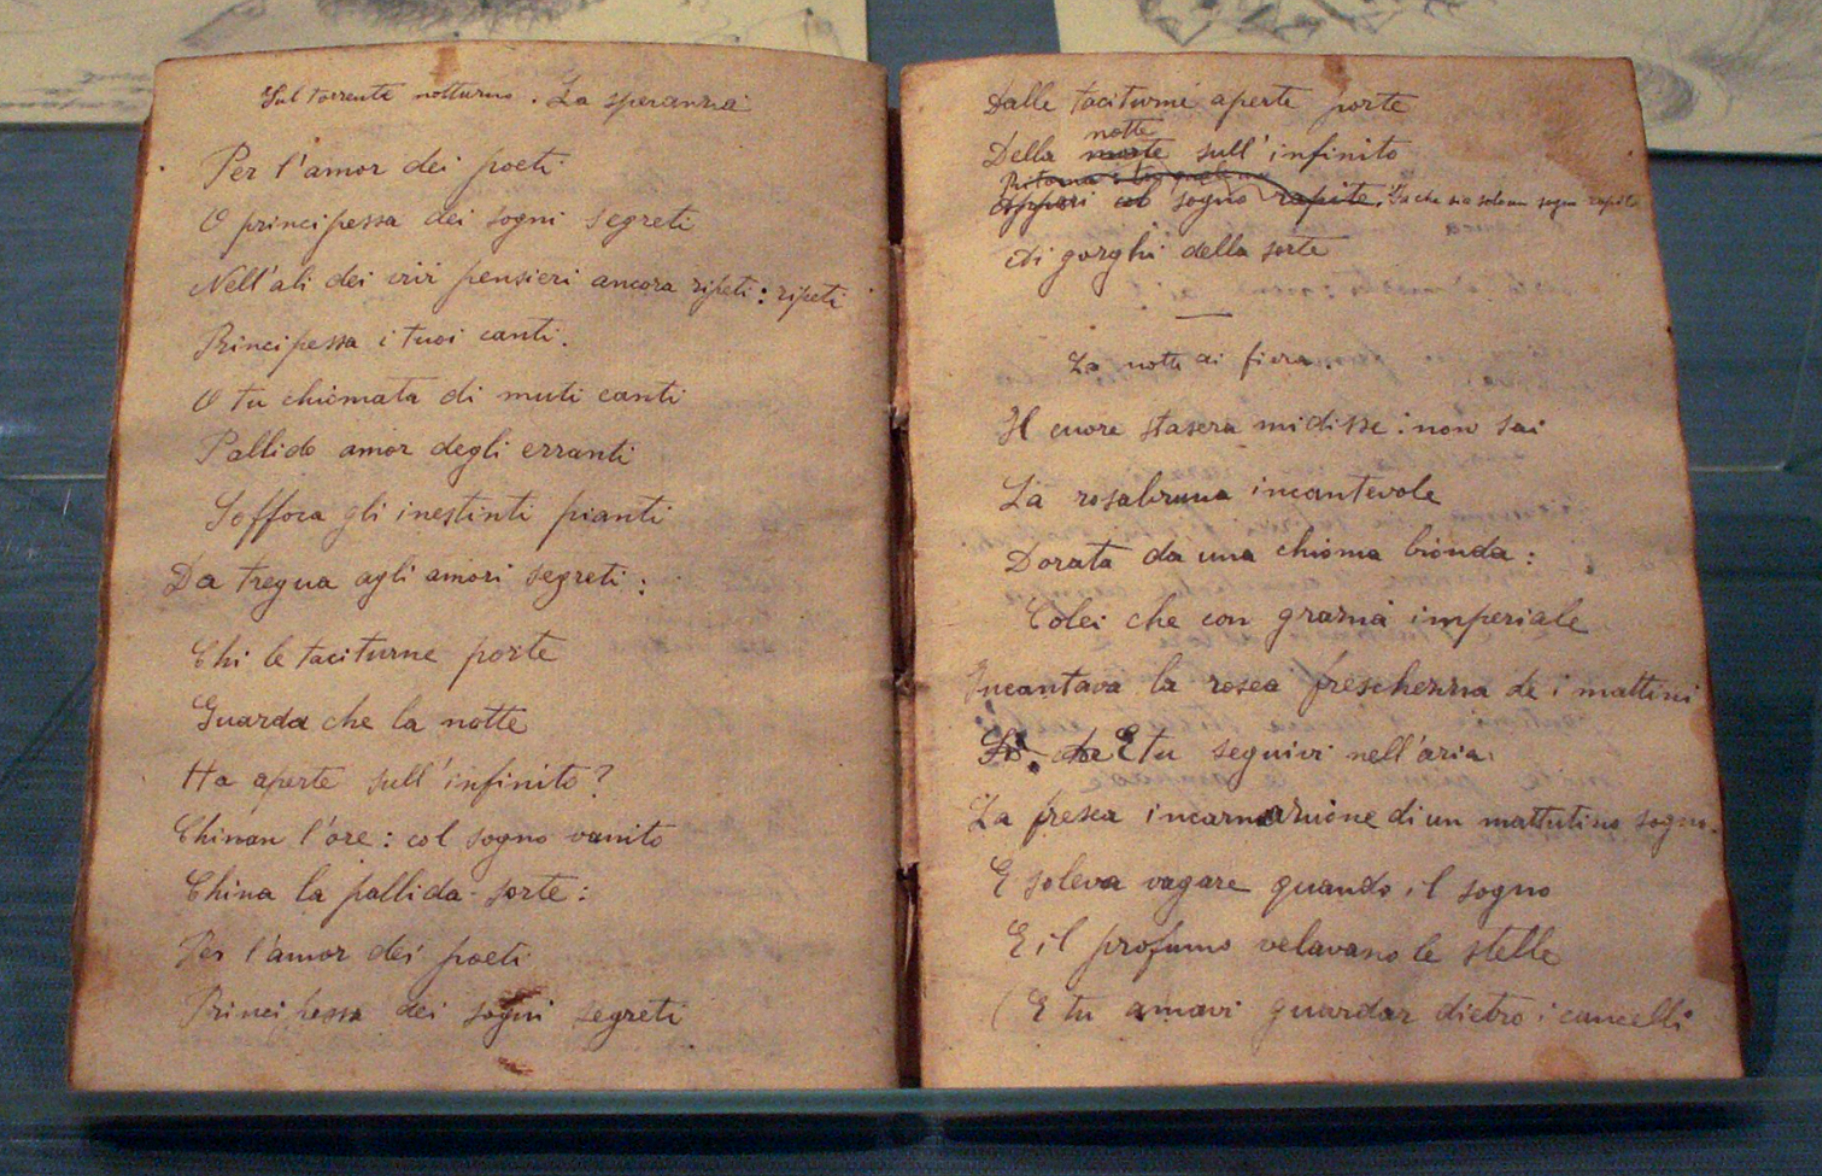 Sul torrente notturno. La speranza
Per l'amor dei poeti
O principessa dei sogni segreti
Nell'ali dei vivi pensieri ancora ripeti: ripeti
Principessa i tuoi canti.
O tu chiomata di muti canti
Pallido amor degli erranti
Soffoca gli inestinti pianti
Da tregua agli amori segreti:
Chi le taciturne porte
Guarda che la notte
Ha aperte sull'infinito?
Chinan l'ore: col sogno vanito
China la pallida sorte:
Per l'amor dei poeti
Principessa dei sogni segreti
Dalle taciturne aperte porte
notte
Della morte sull'infinito
Ritorna
sogno rapito. Sia che sia solo un sogno rapito
Ai gorghi della sorte
La notte di fiera.
Il cuore stasera mi disse: non sai
La rosabruna incantevole
Dorata da una chioma bionda:
Colei che con grazia imperiale
Incantava la rosea freschezza dei mattini
che E tu seguivi nell'aria
La fresca incarnazione di un mattutino sogno.
E soleva vagare quando il sogno
E il profumo velavano le stelle
(E tu amavi guardar dietro i cancelli